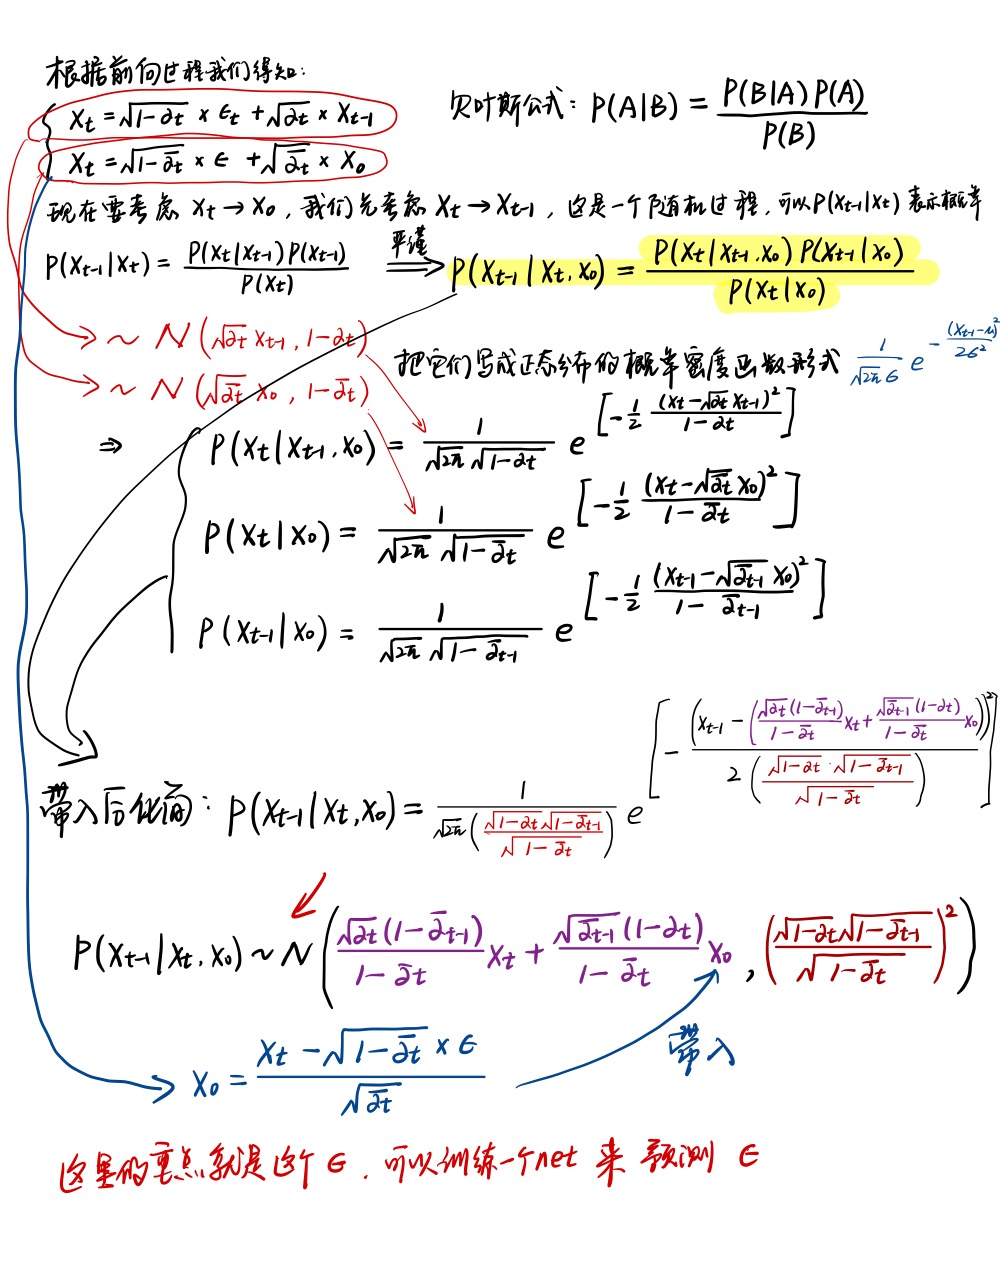 根据前向过程我们得知:
X_t = √(1-α_t) × ε_t + √α_t × X_{t-1}
X_t = √(1-ᾱ_t) × ε + √ᾱ_t × X_0
贝叶斯公式: P(A|B) = P(B|A) P(A) / P(B)
现在要考虑 X_t → X_0, 我们先考虑 X_t → X_{t-1}, 这是一个随机过程, 可以 P(X_{t-1}|X_t) 表示概率
P(X_{t-1}|X_t) = P(X_t|X_{t-1}) P(X_{t-1}) / P(X_t) 严谨 ⟹ P(X_{t-1}|X_t, X_0) = P(X_t|X_{t-1}, X_0) P(X_{t-1}|X_0) / P(X_t|X_0)
~ N(√α_t X_{t-1}, 1-α_t)
~ N(√ᾱ_t X_0, 1-ᾱ_t)
把它们写成正态分布的概率密度函数形式 1/(√2π σ) e^{-(X_{t-1}-μ)²/2σ²}
⇒ P(X_t|X_{t-1}, X_0) = 1/(√2π √(1-α_t)) e^[-1/2 (X_t-√α_t X_{t-1})²/(1-α_t)]
P(X_t|X_0) = 1/(√2π √(1-ᾱ_t)) e^[-1/2 (X_t-√ᾱ_t X_0)²/(1-ᾱ_t)]
P(X_{t-1}|X_0) = 1/(√2π √(1-ᾱ_{t-1})) e^[-1/2 (X_{t-1}-√ᾱ_{t-1} X_0)²/(1-ᾱ_{t-1})]
带入后化简: P(X_{t-1}|X_t, X_0) = 1/(√2π (√(1-α_t)√(1-ᾱ_{t-1})/√(1-ᾱ_t))) e^[-(X_{t-1} - (√α_t(1-ᾱ_{t-1})/(1-ᾱ_t) X_t + √ᾱ_{t-1}(1-α_t)/(1-ᾱ_t) X_0))² / 2(√(1-α_t)·√(1-ᾱ_{t-1})/√(1-ᾱ_t))]
P(X_{t-1}|X_t, X_0) ~ N(√α_t(1-ᾱ_{t-1})/(1-ᾱ_t) X_t + √ᾱ_{t-1}(1-α_t)/(1-ᾱ_t) X_0, (√(1-α_t)√(1-ᾱ_{t-1})/√(1-ᾱ_t))²)
X_0 = (X_t - √(1-ᾱ_t) × ε) / √ᾱ_t
带入
这里的重点就是这个 ε, 可以训练一个net 来 预测 ε